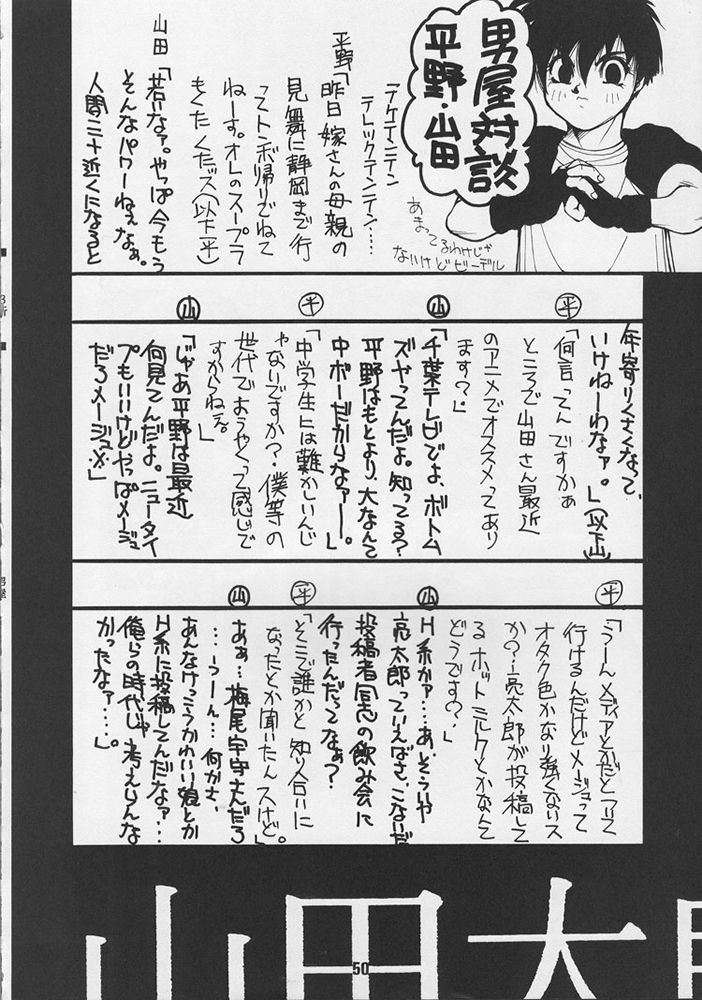 男屋対談
平野・山田
「テケテンテテン
テレックテンテン…
平野「昨日嫁さんの母親の
見舞に静岡まで行
ってトンボ帰りでねて
ねーす。オレのスープラ
もくたくたッス(以下平)
山田「若いなァ。やっぱ今もう
そんなパワーねぇなぁ。
人間三十近くになると
あまってるわけじゃ
ないけどビーデル
年寄りくさくなって、
いけねーわなァ。」(以下山)
平「何言ってんですかぁ
ところで山田さん最近
のアニメでオススメってあり
ます?」
山「千葉テレビでよ、ボトム
ズやってんだよ。知ってる?
平野はもとより、大なんて
中ボーだからなァー。」
平「中学生には難かしいんじ
ゃないですか?僕等の
世代でようやくって感じで
すからねえ。」
山「じゃあ平野は最近
何見てんだよ。ニュータイ
プもいいけどやっぱメージュ
だろメージュ。」
平「うーんメディアとかだとついて
行けるんだけどメージュって
オタク色かなり強くないス
か?亮太郎が投稿して
るホットミルクとかなんて
どうです?」
山 H系かァ…あ、そういや
亮太郎っていえばさ、こないだ
投稿者同志の飲み会に
行ったんだってなぁ?
平「そこで誰かと知り合いに
なったとか聞いたんスけど。」
山 あぁ…梅尾宇守夫んだろ
…うーん…何かさ、
あんなけっこうかわいい娘とか
H系に投稿してんだなァ…
俺らの時代じゃ考えらんな
かったなァ…。」
山田太
50